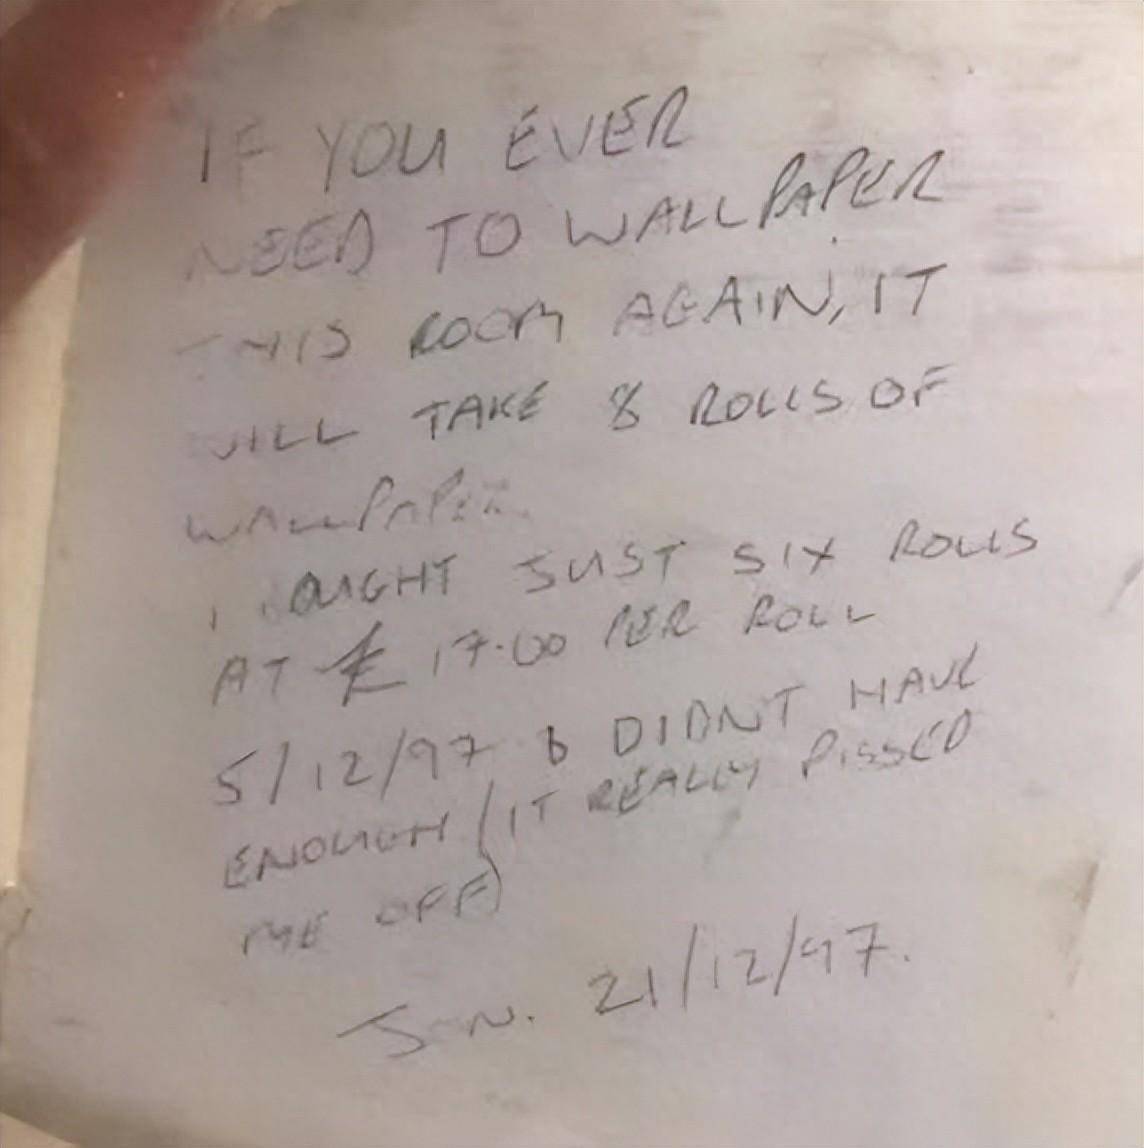 IF YOU EVER
NEED TO WALLPAPER
THIS ROOM AGAIN, IT
WILL TAKE 8 ROLLS OF
WALLPAPER
I BOUGHT JUST SIX ROLLS
AT £17.00 PER ROLL
5/12/97 & DIDNT HAVE
ENOUGH (IT REALLY PISSED
ME OFF)
21/12/97.